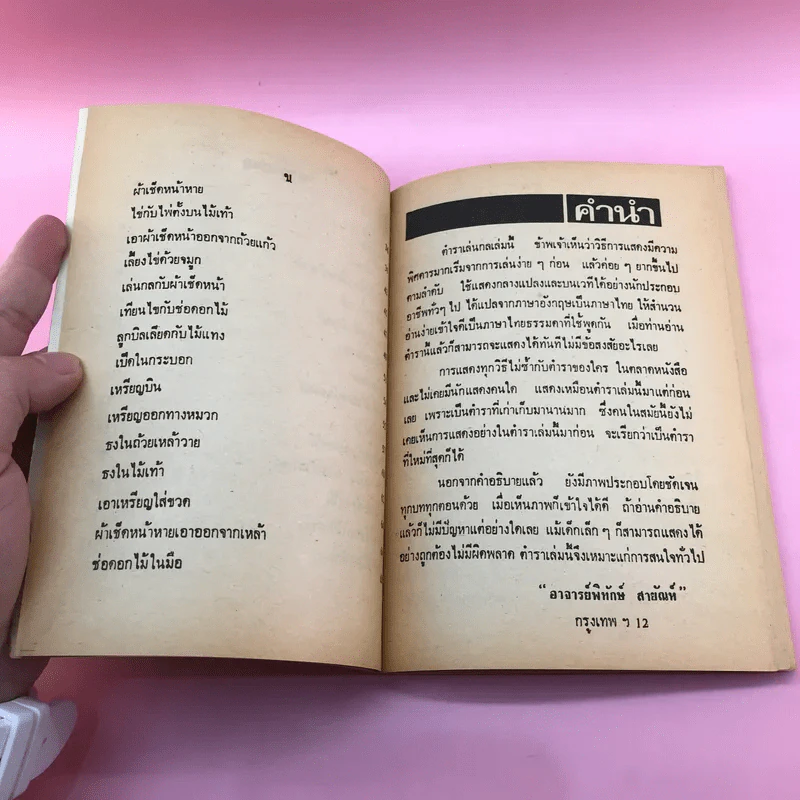 บ
ผ้าเช็ดหน้าหาย
ไข่กับไพ่ตั้งบนไม้เท้า
เอาผ้าเช็ดหน้าออกจากถ้วยแก้ว
เลี้ยงไข่ด้วยจมูก
เล่นกลกับผ้าเช็ดหน้า
เทียนไขกับช่อดอกไม้
ลูกบิลเลียดกับไม้แทง
เป็ดในกระบอก
เหรียญบิน
เหรียญออกทางหมวก
ธงในถ้วยเหล้าวาย
ธงในไม้เท้า
เอาเหรียญใส่ขวด
ผ้าเช็ดหน้าหายเอาออกจากเหล้า
ช่อดอกไม้ในมือ
คำนำ
ตำราเล่นกลเล่มนี้ ข้าพเจ้าเห็นว่าวิธีการแสดงมีความ
พิศดารมากเริ่มจากการเล่นง่าย ๆ ก่อน แล้วค่อย ๆ ยากขึ้นไป
ตามลำดับ ใช้แสดงกลางแปลงและบนเวทีได้อย่างนักประกอบ
อาชีพทั่วๆ ไป ได้แปลจากภาษาอังกฤษเป็นภาษาไทย ให้สำนวน
อ่านง่ายเข้าใจดีเป็นภาษาไทยธรรมดาที่ใช้พูดกัน เมื่อท่านอ่าน
ตำรานี้แล้วก็สามารถจะแสดงได้ทันทีไม่มีข้อสงสัยอะไรเลย
การแสดงทุกวิธีไม่ซ้ำกับตำราของใคร ในตลาดหนังสือ
และไม่เคยมีนักแสดงคนใด แสดงเหมือนตำราเล่มนี้มาแต่ก่อน
เลย เพราะเป็นตำราที่เก่าเก็บมานานมาก ซึ่งคนในสมัยนี้ยังไม่
เคยเห็นการแสดงอย่างในตำราเล่มนี้มาก่อน จะเรียกว่าเป็นตำรา
ที่ใหม่ที่สุดก็ได้
นอกจากคำอธิบายแล้ว ยังมีภาพประกอบโดยชัดเจน
ทุกบททุกตอนด้วย เมื่อเห็นภาพก็เข้าใจได้ดี ถ้าอ่านคำอธิบาย
แล้วก็ไม่มีปัญหาแต่อย่างใดเลย แม้เด็กเล็ก ๆ ก็สามารถแสดงได้
อย่างถูกต้องไม่มีผิดพลาด ตำราเล่มนี้จึงเหมาะแก่การสนใจทั่วไป
“อาจารย์พิทักษ์ สายัณห์”
กรุงเทพ ฯ 12